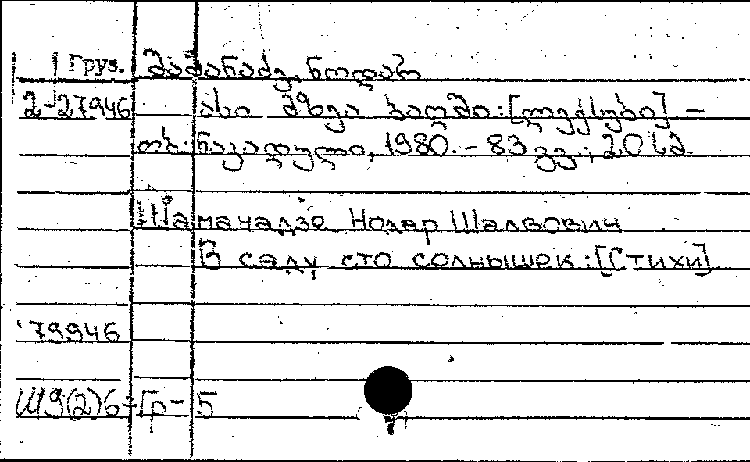 Груз. შამანაძე, ნოდარ
2-27946 ასი მზეა ბაღში: [ლექსები] –
თბ.: ნაკადული, 1980. – 83 გვ.; 20 სმ.
Шаманадзе Нодар Шалвович
В саду сто солнышек: [Стихи]
79946
Ш9(2)6-Гр-5